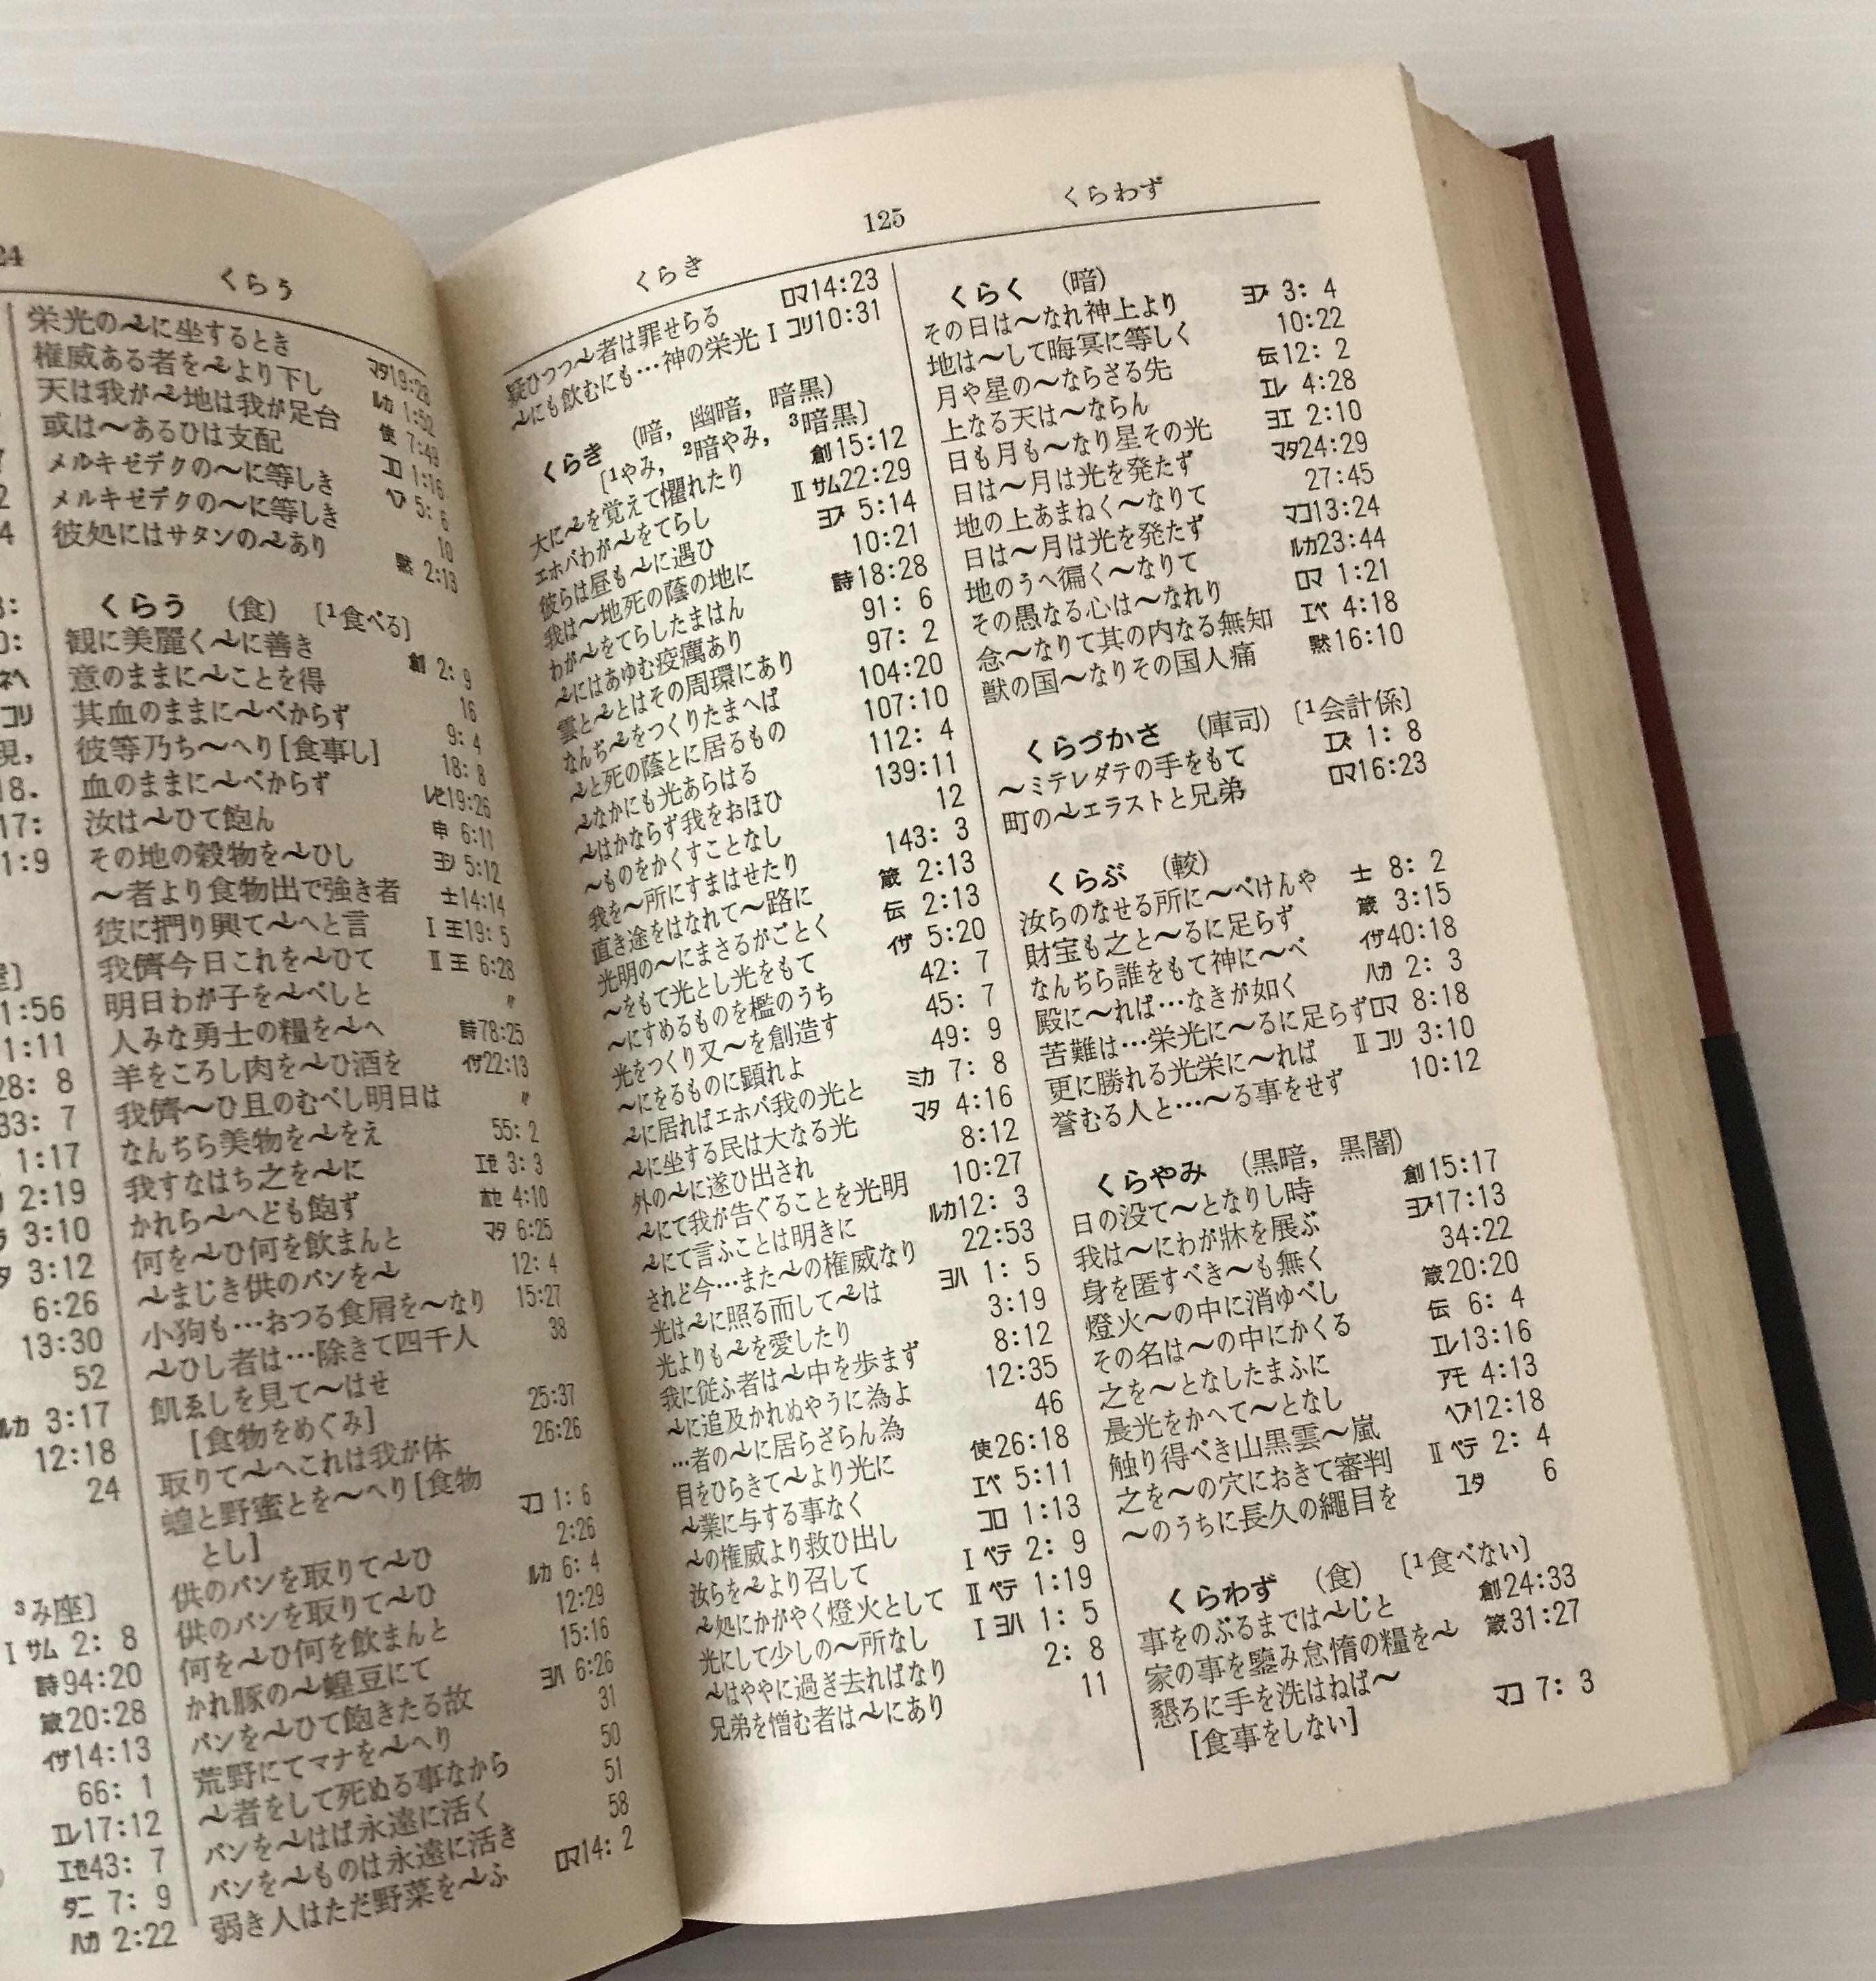 24
くらう
3:
0:
ネヘ
コリ
現,
18.
17:
1:9
1:56
1:11
28: 8
33: 7
1:17
2:19
3:10
3:12
6:26
13:30
52
ルカ 3:17
12:18
24
³み座]
I サム 2: 8
詩94:20
箴20:28
イザ14:13
66: 1
エレ17:12
エゼ43: 7
ダニ 7: 9
ハガ 2:22
栄光の〜に坐するとき マタ19:28
権威ある者を〜より下し ルカ 1:52
天は我が〜地は我が足台 使 7:49
或は〜あるひは支配 コロ 1:16
メルキゼデクの〜に等しき ヘブ 5: 6
メルキゼデクの〜に等しき 10
彼処にはサタンの〜あり 黙 2:13
くらう (食) [¹食べる]
観に美麗く〜に善き 創 2: 9
意のままに〜ことを得 16
其血のままに〜べからず 9: 4
彼等乃ち〜へり[食事し] 18: 8
血のままに〜べからず レビ19:26
汝は〜ひて飽ん 申 6:11
その地の穀物を〜ひし ヨシ 5:12
〜者より食物出で強き者 士14:14
彼に捫り興て〜へと言 I 王19: 5
我儕今日これを〜ひて II 王 6:28
明日わが子を〜べしと 〃
人みな勇士の糧を〜へ 詩78:25
羊をころし肉を〜ひ酒を イザ22:13
我儕〜ひ且のむべし明日は 〃
なんちら美物を〜をえ 55: 2
我すなはち之を〜に エゼ 3: 3
かれら〜へども飽ず ホセ 4:10
何を〜ひ何を飲まんと マタ 6:25
〜まじき供のパンを〜 12: 4
小狗も…おつる食屑を〜なり 15:27
〜ひし者は…除きて四千人 38
飢ゑしを見て〜はせ
[食物をめぐみ] 25:37
取りて〜へこれは我が体 26:26
蝗と野蜜とを〜へり[食物
とし] マコ 1: 6
供のパンを取りて〜ひ 2:26
供のパンを取りて〜ひ ルカ 6: 4
何を〜ひ何を飲まんと 12:29
かれ豚の〜蝗豆にて 15:16
パンを〜ひて飽きたる故 ヨハ 6:26
荒野にてマナを〜へり 31
〜者をして死ぬる事なから 50
パンを〜はば永遠に活く 51
パンを〜ものは永遠に活き 58
弱き人はただ野菜を〜ふ ロマ14: 2
くらき 125 くらわず
疑ひつつ〜者は罪せらる ロマ14:23
〜にも飲むにも…神の栄光 I コリ10:31
くらき (暗, 幽暗, 暗黒)
[¹やみ, ²暗やみ, ³暗黒]
大に〜を覚えて懼れたり 創15:12
エホバわが〜をてらし II サム22:29
彼らは昼も〜に遇ひ ヨブ 5:14
我は〜地死の蔭の地に 10:21
わが〜をてらしたまはん 詩18:28
〜にはあゆむ疫癘あり 91: 6
雲と〜とはその周環にあり 97: 2
なんぢ〜をつくりたまへば 104:20
〜と死の蔭とに居るもの 107:10
〜なかにも光あらはる 112: 4
〜はかならず我をおほひ 139:11
〜ものをかくすことなし 12
我を〜所にすまはせたり 143: 3
直き途をはなれて〜路に 箴 2:13
光明の〜にまさるがごとく 伝 2:13
〜をもて光とし光をもて イザ 5:20
〜にすめるものを檻のうち 42: 7
光をつくり又〜を創造す 45: 7
〜にをるものに顕れよ 49: 9
〜に居ればエホバ我の光と ミカ 7: 8
〜に坐する民は大なる光 マタ 4:16
外の〜に逐ひ出され 8:12
〜にて我が告ぐることを光明 10:27
〜にて言ふことは明きに ルカ12: 3
されど今…また〜の権威なり 22:53
光は〜に照る而して〜は ヨハ 1: 5
光よりも〜を愛したり 3:19
我に従ふ者は〜中を歩まず 8:12
〜に追及かれぬやうに為よ 12:35
…者の〜に居らざらん為 46
目をひらきて〜より光に 使26:18
〜業に与する事なく エペ 5:11
〜の権威より救ひ出し コロ 1:13
汝らを〜より召して I ペテ 2: 9
〜処にかがやく燈火として II ペテ 1:19
光にして少しの〜所なし I ヨハ 1: 5
〜はややに過ぎ去ればなり 2: 8
兄弟を憎む者は〜にあり 11
くらく (暗)
その日は〜なれ神上より ヨブ 3: 4
地は〜して晦冥に等しく 10:22
月や星の〜ならざる先 伝12: 2
上なる天は〜ならん エレ 4:28
日も月も〜なり星その光 ヨエ 2:10
日は〜月は光を発たず マタ24:29
地の上あまねく〜なりて 27:45
日は〜月は光を発たず マコ13:24
地のうへ徧く〜なりて ルカ23:44
その愚なる心は〜なれり ロマ 1:21
念〜なりて其の内なる無知 エペ 4:18
獣の国〜なりその国人痛 黙16:10
くらづかさ (庫司) [¹会計係]
〜ミテレダテの手をもて エズ 1: 8
町の〜エラストと兄弟 ロマ16:23
くらぶ (較)
汝らのなせる所に〜べけんや 士 8: 2
財宝も之と〜るに足らず 箴 3:15
なんぢら誰をもて神に〜べ イザ40:18
殿に〜れば…なきが如く ハガ 2: 3
苦難は…栄光に〜るに足らずロマ 8:18
更に勝れる光栄に〜れば II コリ 3:10
誉むる人と…〜る事をせず 10:12
くらやみ (黒暗, 黒闇)
日の没て〜となりし時 創15:17
我は〜にわが牀を展ぶ ヨブ17:13
身を匿すべき〜も無く 34:22
燈火〜の中に消ゆべし 箴20:20
その名は〜の中にかくる 伝 6: 4
之を〜となしたまふに エレ13:16
晨光をかへて〜となし アモ 4:13
触り得べき山黒雲〜嵐 ヘブ12:18
之を〜の穴におきて審判 II ペテ 2: 4
〜のうちに長久の繩目を ユダ 6
くらわず (食) [¹食べない]
事をのぶるまでは〜じと 創24:33
家の事を鑒み怠惰の糧を〜 箴31:27
懇ろに手を洗はねば〜
[食事をしない] マコ 7: 3